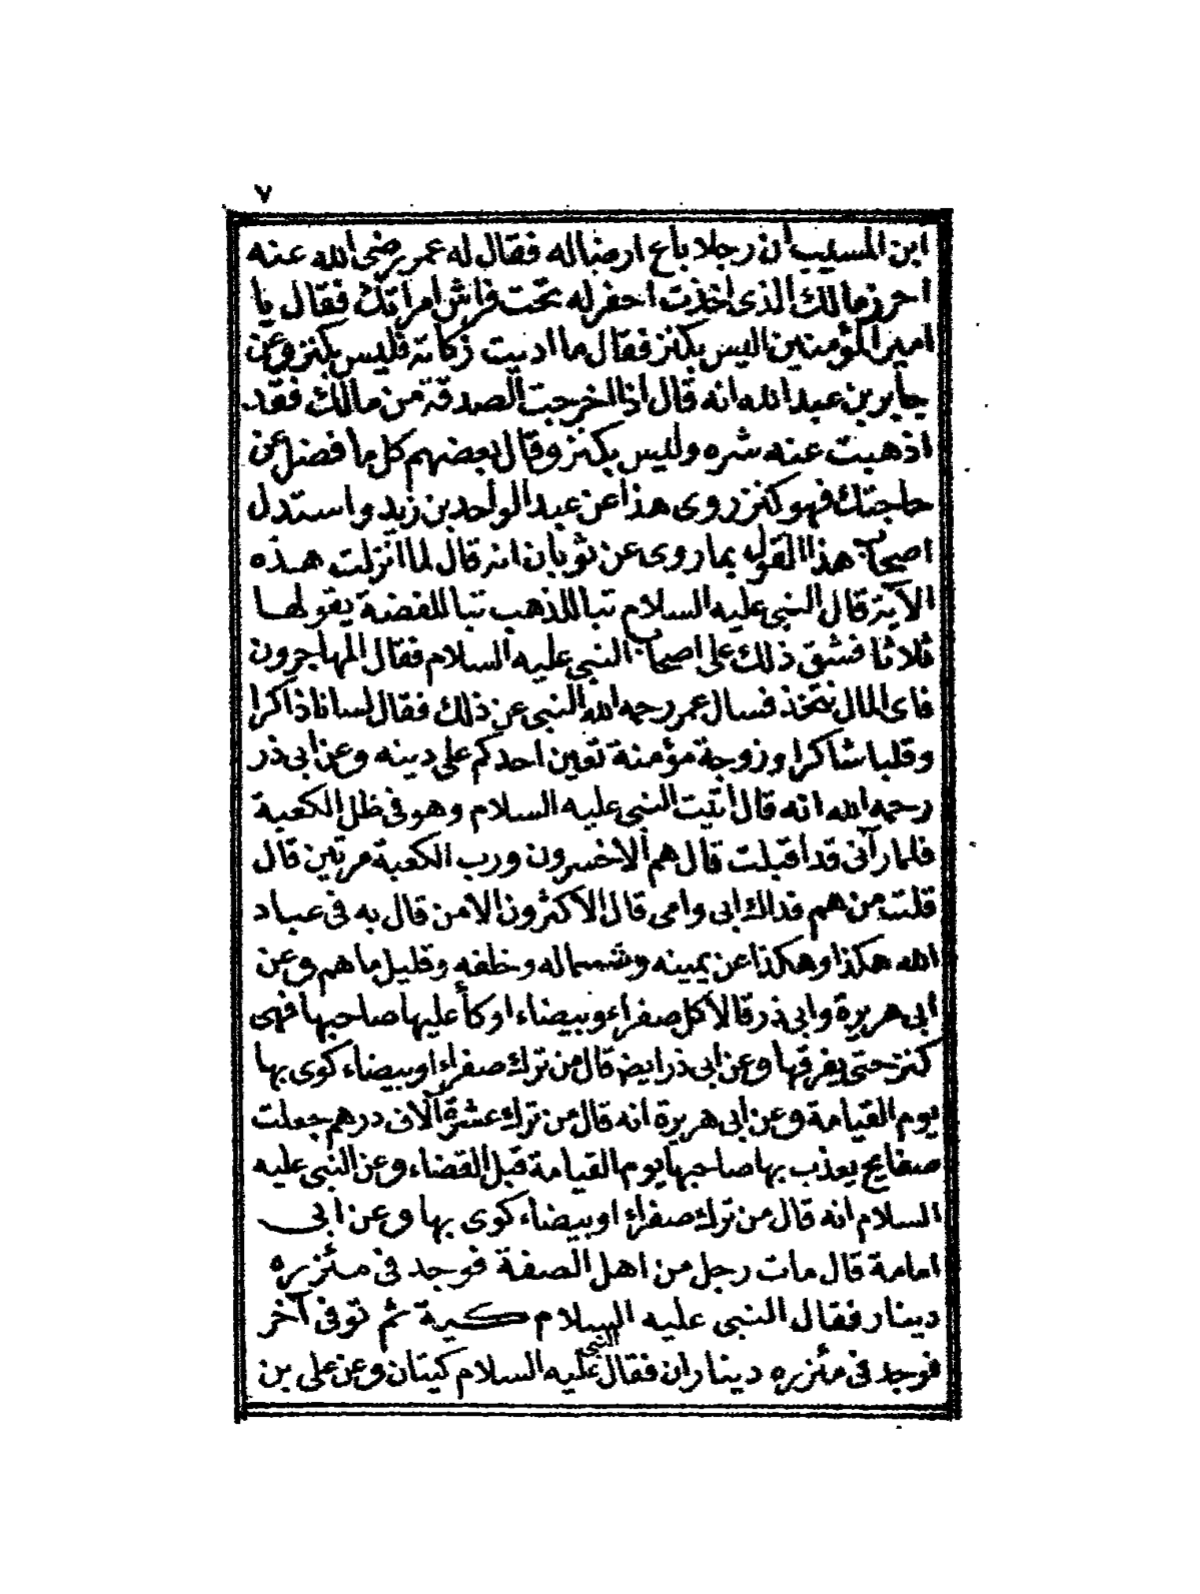 ٧
ابن المسيب ان رجلا باع ارضا له فقال له عمر رضى الله عنه
احرز مالك الذى اخذت احفر له تحت فراش امراتك فقال يا
امير المؤمنين اليس بكنز فقال ما اديت زكاته فليس بكنز وعن
جابر بن عبد الله انه قال اذا اخرجت الصدقة من مالك فقد
اذهبت عنه شره وليس بكنز وقال بعضهم كل ما فضل عن
حاجتك فهو كنز روى هذا عن عبد الواحد بن زيد واستدل
اصحاب هذا القول بما روى عن ثوبان انه قال لما انزلت هذه
الآية قال النبى عليه السلام تبا للذهب تبا للفضة يقولها
ثلاثا فشق ذلك على اصحاب النبى عليه السلام فقال المهاجرون
فاى المال نتخذ فسال عمر رحمه الله النبى عن ذلك فقال لسانا ذاكرا
وقلبا شاكرا وزوجة مؤمنة تعين احدكم على دينه وعن ابى ذر
رحمه الله انه قال اتيت النبى عليه السلام وهو فى ظل الكعبة
فلما رآنى قد اقبلت قال هم الاخسرون ورب الكعبة مرتين قال
قلت من هم فداك ابى وامى قال الاكثرون الا من قال به فى عباد
الله هكذا وهكذا عن يمينه وشماله وخلفه وقليل ما هم وعن
ابى هريرة وابى ذر قالا كل صفراء وبيضاء اوكأ عليها صاحبها فهى
كنز حتى يفرقها وعن ابى ذر ايضا قال من ترك صفراء او بيضاء كوى بها
يوم القيامة وعن ابى هريرة انه قال من ترك عشرة آلاف درهم جعلت
صفايح يعذب بها صاحبها يوم القيامة قبل القضاء وعن النبى عليه
السلام انه قال من ترك صفراء او بيضاء كوى بها وعن ابى
امامة قال مات رجل من اهل الصفة فوجد فى مئزره
دينار فقال النبى عليه السلام كية ثم توفى آخر
فوجد فى مئزره ديناران فقال النبى عليه السلام كيتان وعن على بن